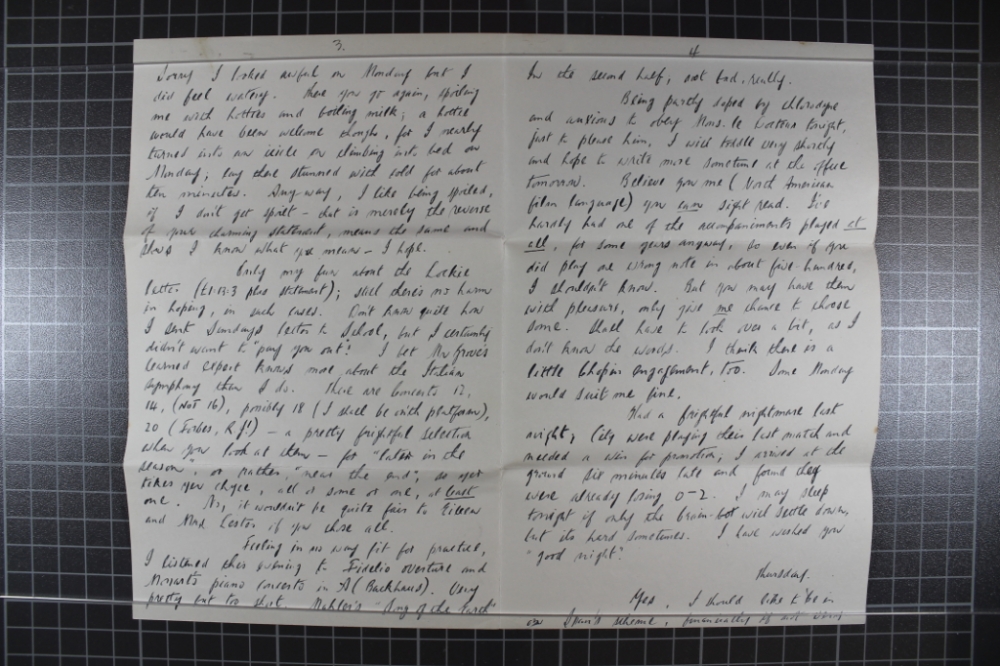 3.
Sorry I looked awful on Monday but I
did feel watery. There you go again, spoiling
me with hotties and boiling milk; a hottie
would have been welcome though, for I nearly
turned into an icicle on climbing into bed on
Monday; lay there stunned with cold for about
ten minutes. Any-way, I like being spoiled,
if I don't get spoilt – that is merely the reverse
of your charming statement, means the same and
shows I know what you mean – I hope.
Only my fun about the Lockie
letter (£1-13-3 plus statement); still there's no harm
in hoping, in such cases. Don't know quite how
I sent Sunday's letter to School, but I certainly
didn't want to "pay you out"! I bet Mr Grove's
learned expert knows more about the Italian
Symphony than I do. There are Concerts 12,
14, (not 16), possibly 18 (I shall be on the platform),
20 (Forbes, R.J!) – a pretty frightful selection
when you look at them – for "later in the
season", or rather, "near the end"; so you
takes yer choice, all or some or one, at least
one. No, it wouldn't be quite fair to Eileen
and Mrs. if you chose all.
Feeling in no way fit for practice,
I listened this evening to Fidelio overture and
Mozart's piano concerto in A (Backhaus). Very
pretty but too short. Mahler's "Song of the Earth"
4
In the second half, not bad, really.
Being partly doped by
and anxious to obey Mons. le tonight,
just to please him, I will toddle very shortly
and hope to write more sometime at the office
tomorrow. Believe you me (North American
film language) you can sight read. I've
hardly had one of the accompaniments played at
all, for some years anyway, so even if you
did play one wrong note in about five-hundred,
I shouldn't know. But you may have them
with pleasure, only give me chance to choose
some. Shall have to look over a bit, as I
don't know the words. I think there is a
little Chopin engagement, too. Some Monday
would suit me fine.
Had a frightful nightmare last
night; City were playing their last match and
needed a win for promotion; I arrived at the
ground six minutes late and found they
were already losing 0-2. I may sleep
tonight if only the brain-box will settle down,
but it's hard sometimes. I have wished you
"good night".
Thursday.
Yes, I should like to be in
on scheme, financially if not